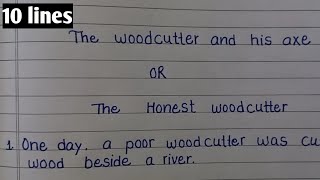 10 lines
The woodcutter and his axe
OR
The Honest woodcutter
1. One day. a poor woodcutter was cu
wood beside a river.